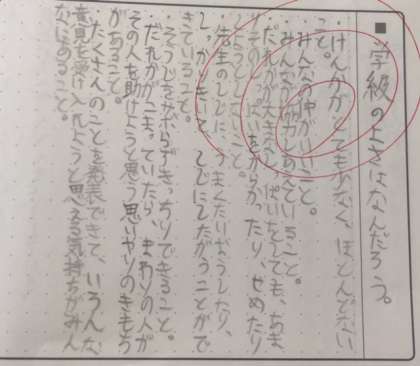 ■学級のよさはなんだろう。
・けんかがとても少なく、ほとんどない
こと。
・みんなの仲がいいこと。
・みんなが協力しあっていること。
・だれかが大きなしっぱいをしても、あま
りそのしっぱいをからかったり、せめたり
しようとしないこと。
・先生の
しっかりきいて
きていること。
・そうじをサボらずきっちりできること。
・だれかがこまっていたら、まわりの人が
その人を助けようと思う思いやりのきもち
があること。
・たくさんのことを発表できて、いろんな
意見を受け入れようと思える気持ちがみん
なにあること。